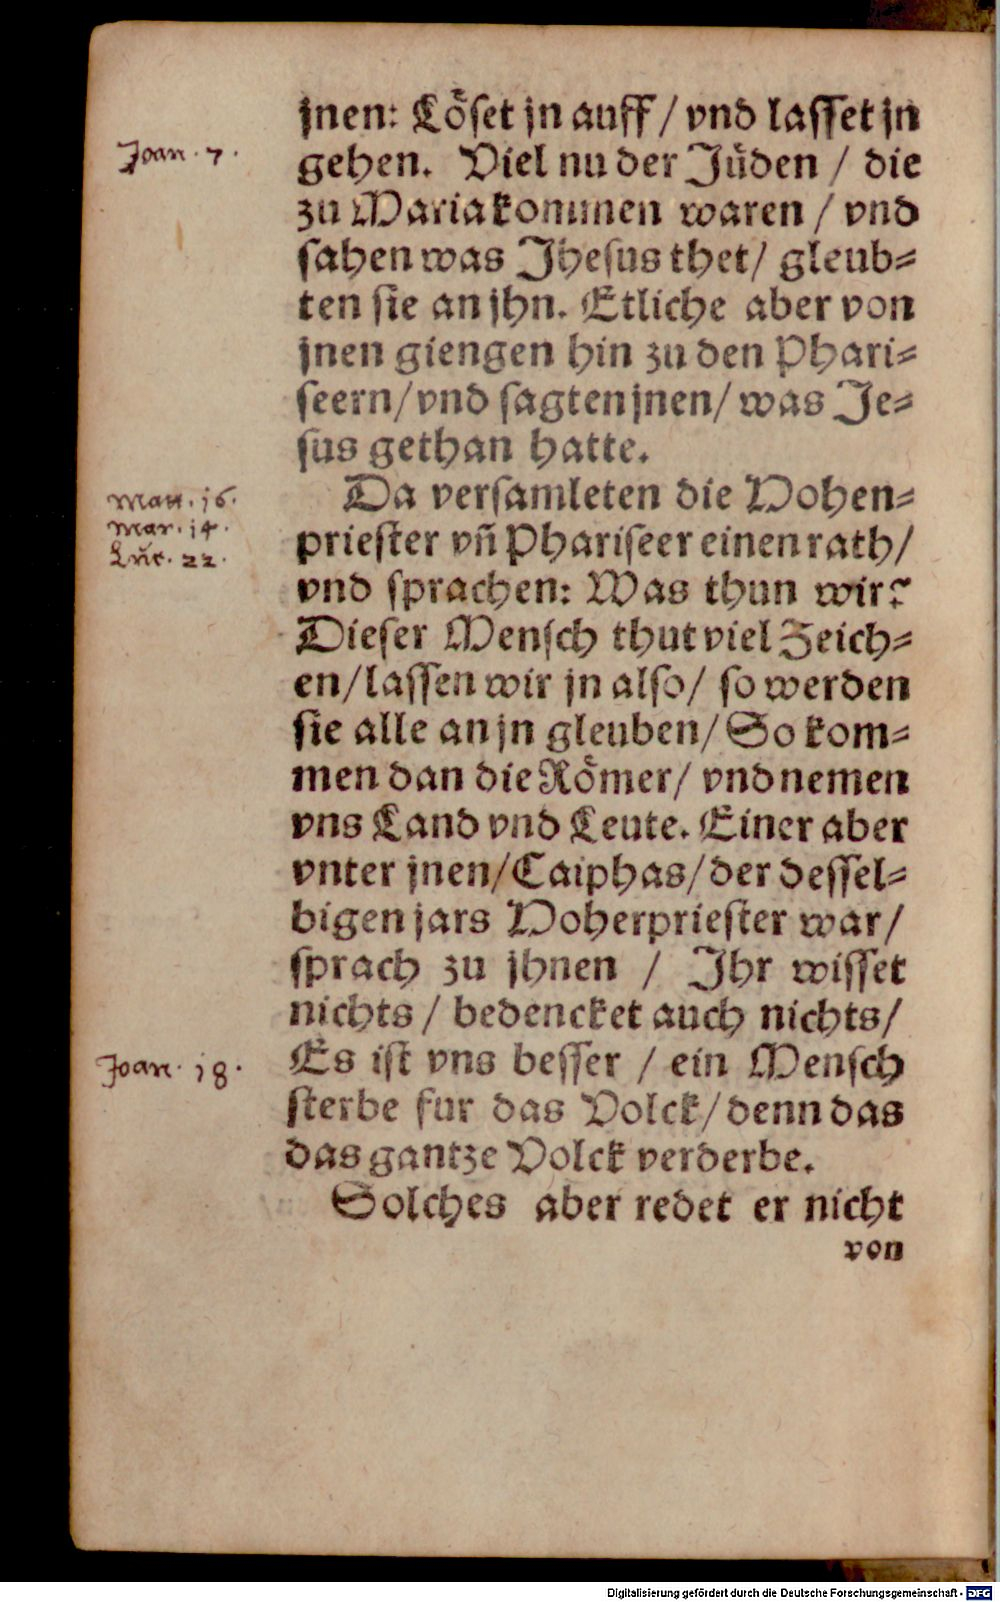 jnen: Löset jn auff / vnd lasset jn
Joan. 7.
gehen. Viel nu der Jüden / die
zu Maria kommen waren / vnd
sahen was Jhesus thet / gleub=
ten sie an jhn. Etliche aber von
jnen giengen hin zu den Phari=
seern / vnd sagten jnen / was Je=
sus gethan hatte.
Matt. 16.
Mar. 14.
Luc. 22.
Da versamleten die Hohen=
priester vñ Phariseer einen rath /
vnd sprachen: Was thun wir?
Dieser Mensch thut viel Zeich=
en / lassen wir jn also / so werden
sie alle an jn gleuben / So kom=
men dan die Römer / vnd nemen
vns Land vnd Leute. Einer aber
vnter jnen / Caiphas / der dessel=
bigen jars Hoherpriester war /
sprach zu jhnen / Jhr wisset
nichts / bedencket auch nichts /
Joan. 18.
Es ist vns besser / ein Mensch
sterbe fur das Volck / denn das
das gantze Volck verderbe.
Solches aber redet er nicht
von
Digitalisierung gefördert durch die Deutsche Forschungsgemeinschaft - DFG